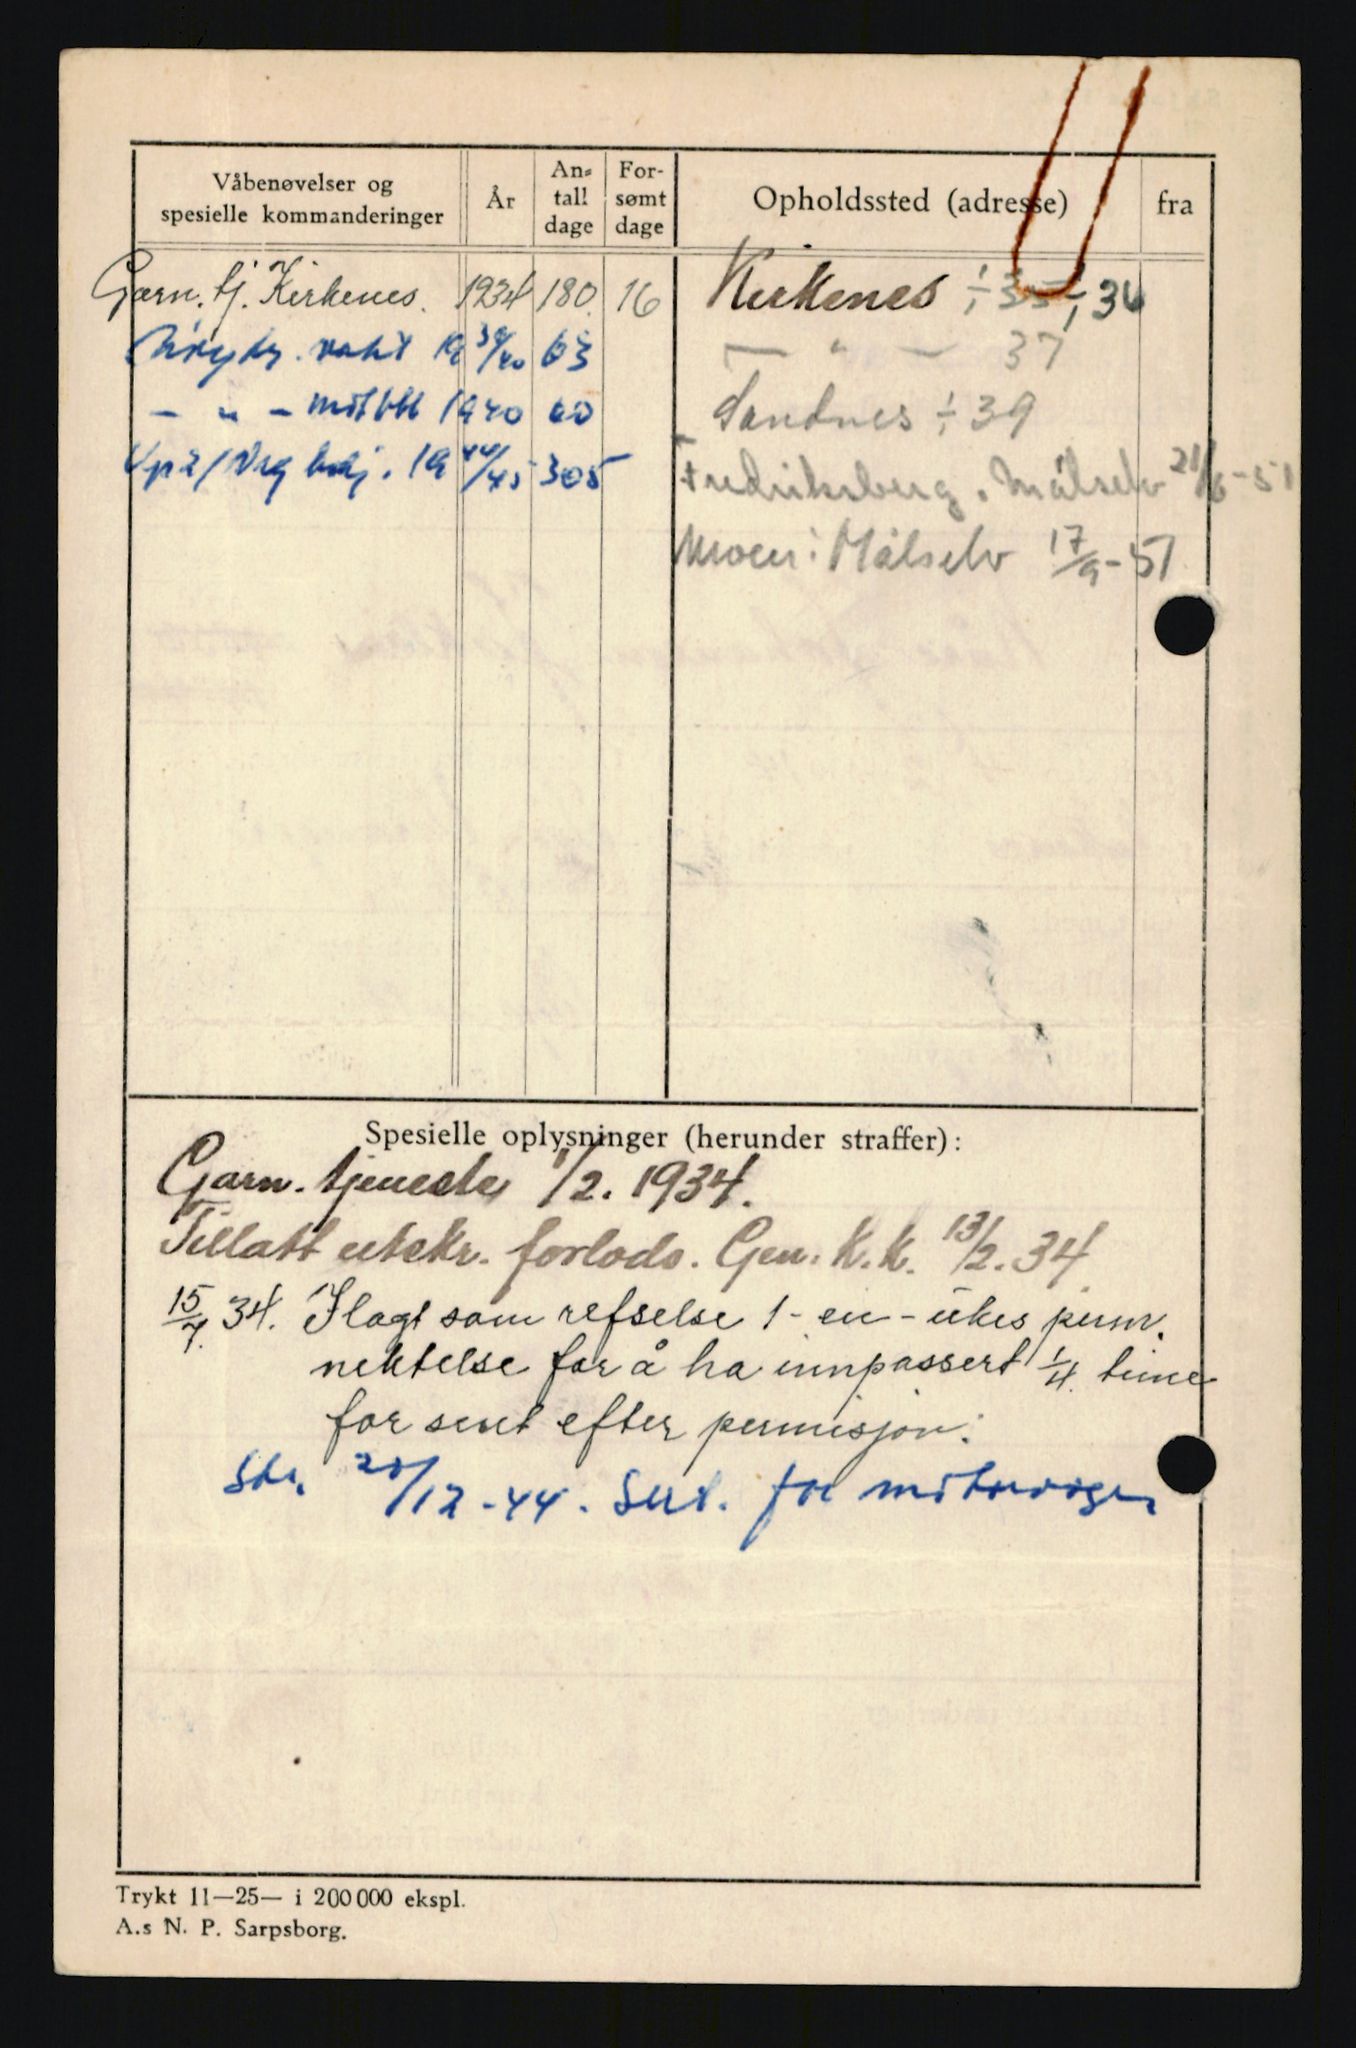 Våbenøvelser og
spesielle kommanderinger
År
An-
tall
dage
For-
sømt
dage
Opholdssted (adresse)
fra
Garn. tj. Kirkenes. 1934 180. 16
vakt 19 39/40 63
— " — 1940 60
19 44/45 305
Kirkenes ÷ 35 ÷ 36
— " — 37
Sandnes ÷ 39
Fredriksberg, Målselv 21/6-51
Moen i Målselv 17/9-51
Spesielle oplysninger (herunder straffer):
Garn. tjeneste 1/2. 1934.
Tillatt utskr. forlods. Gen. K.k. 13/2. 34
15/7. 34. Ilagt som refselse 1-en-ukes perm.
nektelse for å ha innpassert 1/4. time
for sent efter permisjon.
20/12-44. Sert. for motorvogn
Trykt 11—25— i 200 000 ekspl.
A.s N. P. Sarpsborg.